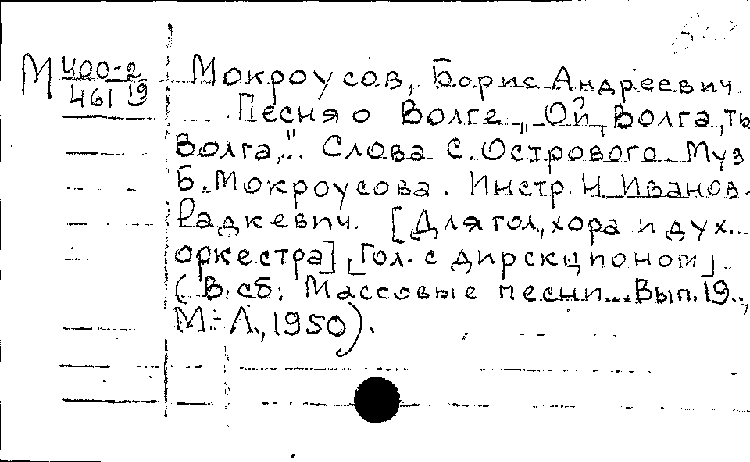 М 400-2
461 19
Мокроусов, Борис Андреевич.
Песня о Волге „Ой, Волга, ты
Волга,". Слова С. Острового. Муз
Б. Мокроусова. Инстр. Н. Иванов-
Радкевич. [Для гол, хора и дух...
оркестра] [Гол. с дирекционом].
(В сб: Массовые песни... Вып. 19.,
М.-Л., 1950).